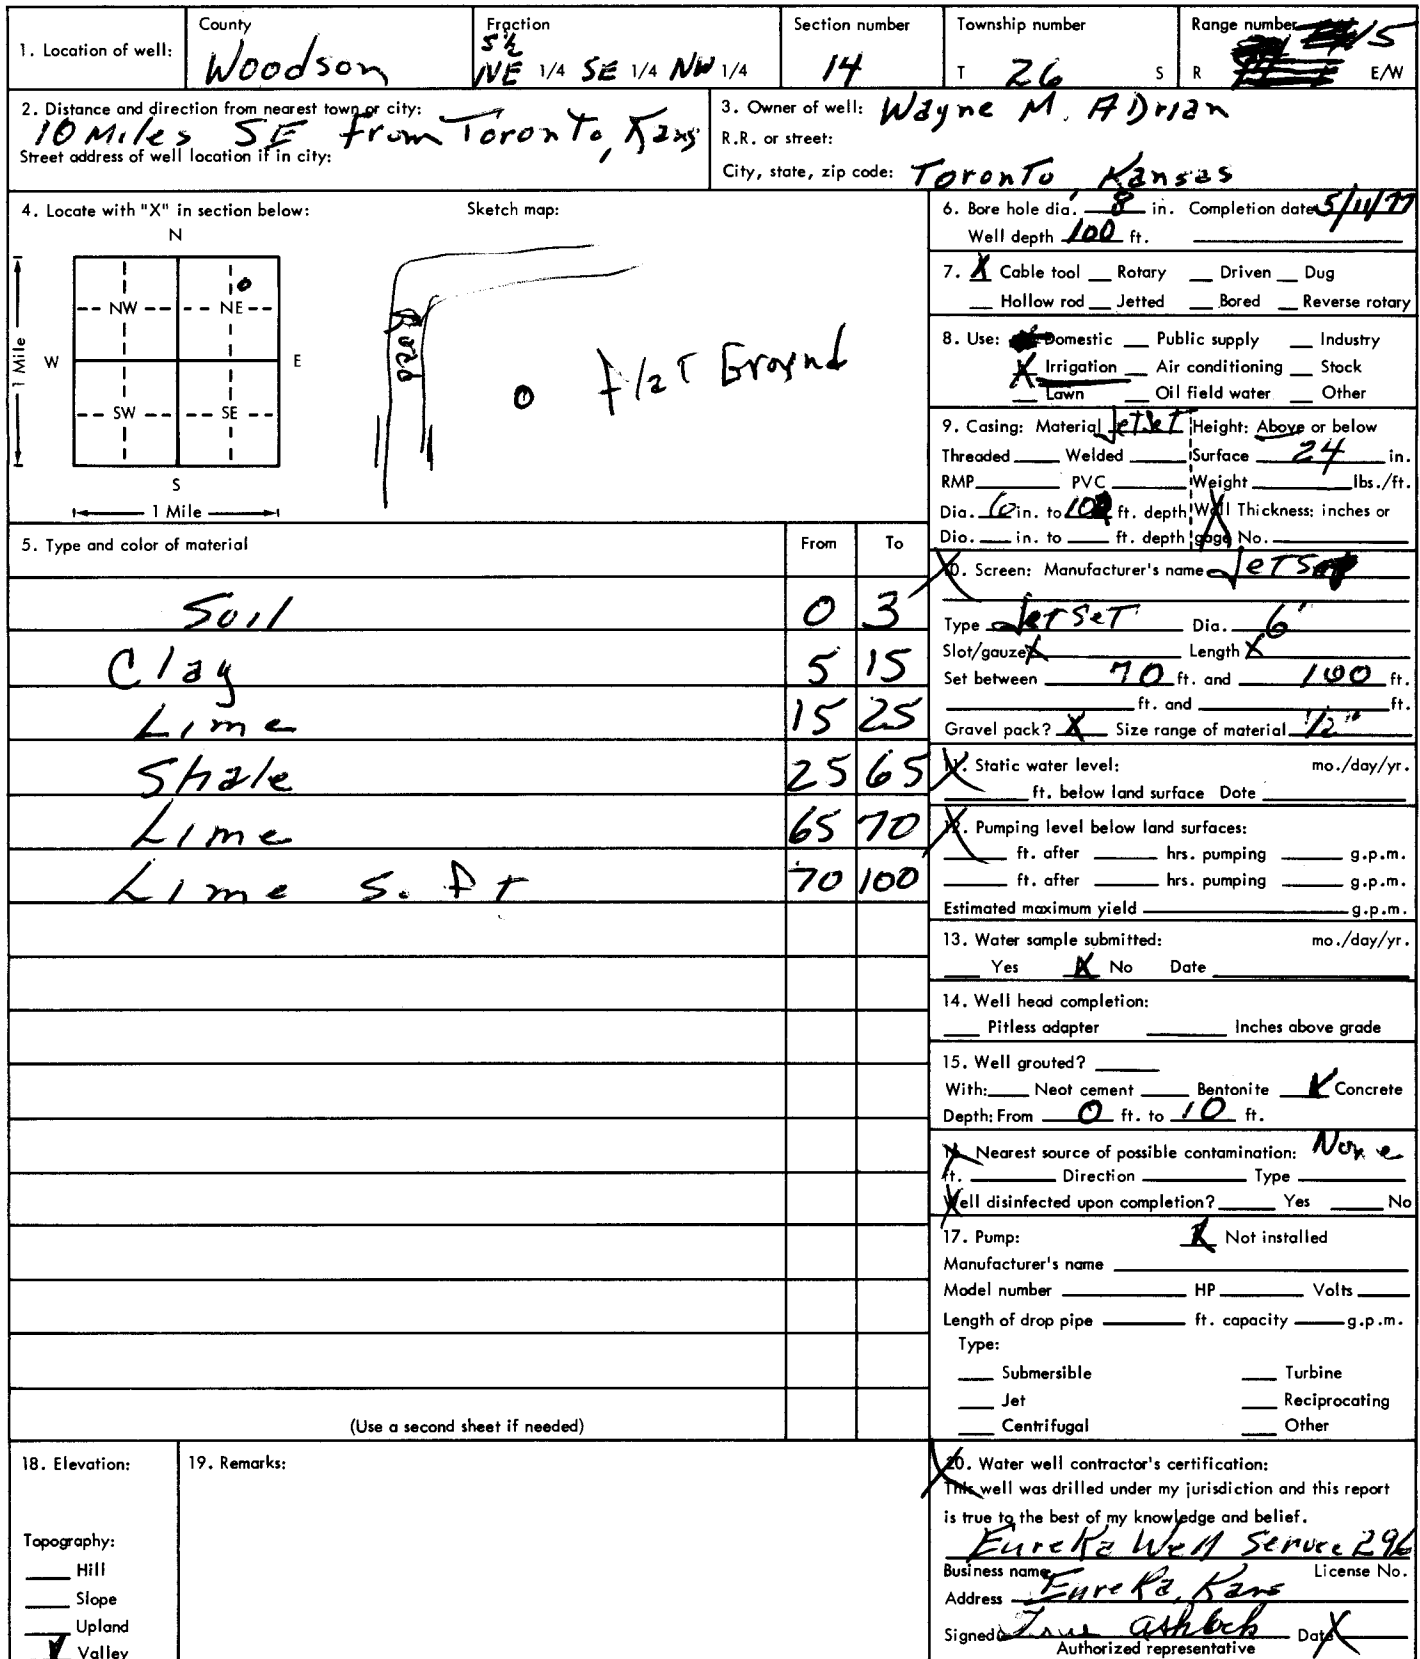 1. Location of well:
County
Woodson
Fraction
S ½
NE 1/4 SE 1/4 NW 1/4
Section number
14
Township number
T 26 S
Range number
R 15 E/W
2. Distance and direction from nearest town or city:
10 Miles SE from Toronto, Kans
Street address of well location if in city:
3. Owner of well: Wayne M. ADrian
R.R. or street:
City, state, zip code: Toronto, Kansas
4. Locate with "X" in section below:
Sketch map:
N
NW NE
W E
SW SE
S
1 Mile
1 Mile
Road
flat Ground
6. Bore hole dia. 8 in. Completion date 5/11/77
Well depth 100 ft.
7. X Cable tool Rotary Driven Dug
Hollow rod Jetted Bored Reverse rotary
8. Use: Domestic Public supply Industry
X Irrigation Air conditioning Stock
Lawn Oil field water Other
9. Casing: Material JetSet Height: Above or below
Threaded Welded Surface 24 in.
RMP PVC Weight lbs./ft.
Dia. 6 in. to 100 ft. depth Wall Thickness: inches or
Dia. in. to ft. depth gage No.
5. Type and color of material From To
Soil 0 3
Clay 5 15
Lime 15 25
Shale 25 65
Lime 65 70
Lime s. ft 70 100
(Use a second sheet if needed)
10. Screen: Manufacturer's name
Type JetSeT Dia. 6"
Slot/gauze X Length X
Set between 70 ft. and 100 ft.
ft. and ft.
Gravel pack? X Size range of material 1/2"
11. Static water level: mo./day/yr.
ft. below land surface Date
12. Pumping level below land surfaces:
ft. after hrs. pumping g.p.m.
ft. after hrs. pumping g.p.m.
Estimated maximum yield g.p.m.
13. Water sample submitted: mo./day/yr.
Yes X No Date
14. Well head completion:
Pitless adapter Inches above grade
15. Well grouted?
With: Neat cement Bentonite Concrete
Depth: From 0 ft. to 10 ft.
16. Nearest source of possible contamination: None
ft. Direction Type
Well disinfected upon completion? Yes No
17. Pump: X Not installed
Manufacturer's name
Model number HP Volts
Length of drop pipe ft. capacity g.p.m.
Type:
Submersible Turbine
Jet Reciprocating
Centrifugal Other
18. Elevation:
Topography:
Hill
Slope
Upland
Valley
19. Remarks:
20. Water well contractor's certification:
This well was drilled under my jurisdiction and this report
is true to the best of my knowledge and belief.
EureKa Well Service 296
Business name License No.
Address EureKa, Kans
Signed Ashlock Date X
Authorized representative